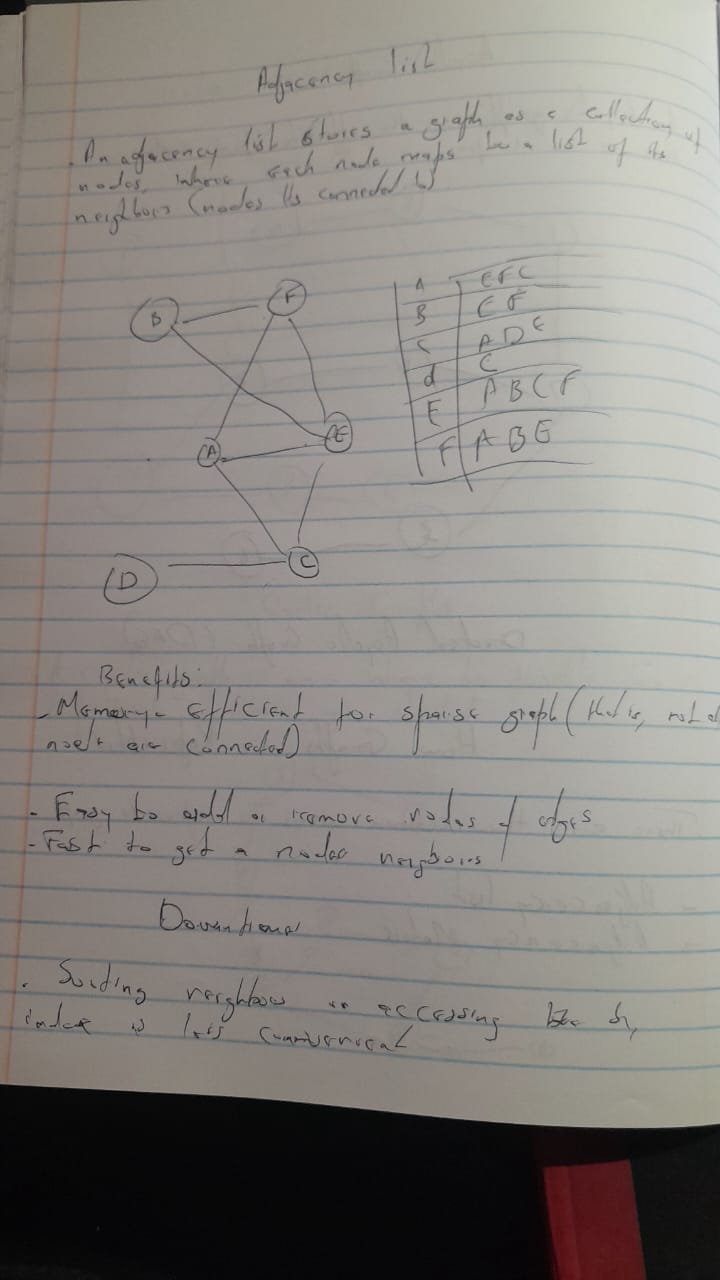 Adjacency list
. An adjacency list stores a graph as a collection of
nodes, where each node maps to a list of its
neighbors (nodes its connected to)
B F
A E
D C
A EFC
B E F
C A D E
d C
E A B C F
F A B E
Benefits:
- Memory- Efficient for sparse graph (that is, not
are connected)
- Easy to add or remove nodes / edges
- Fast to get a nodes neighbors
. neighbors or accessing by
index is less